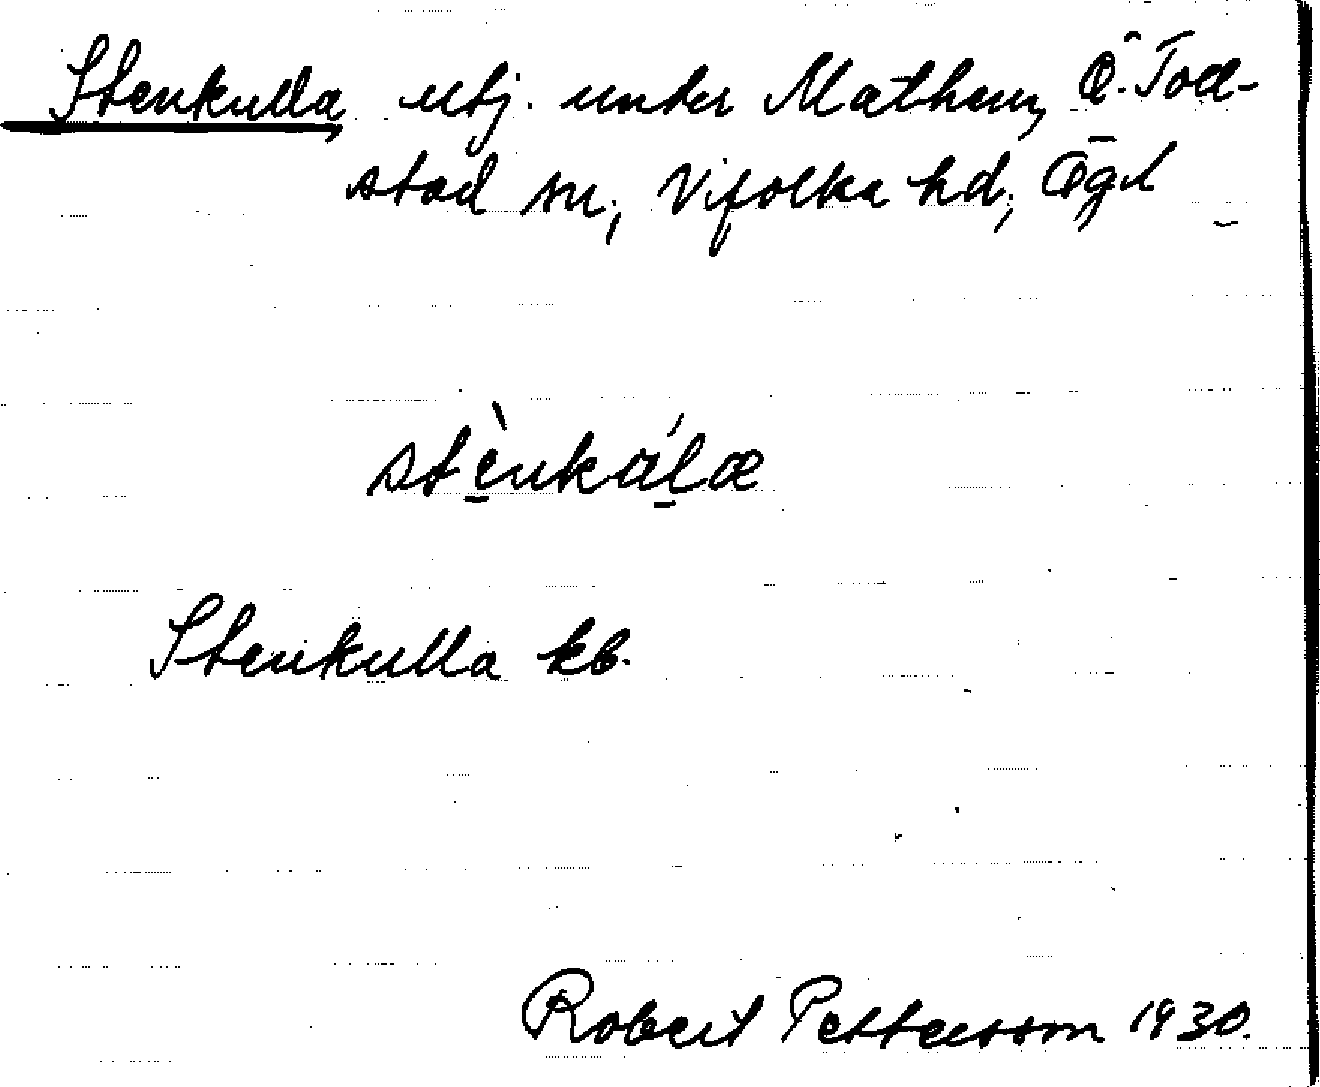 Stenkulla, utj. under Mathem, Ö. Tod-
stad sn., Vifolka hd, Ögl
stènkálæ
Stenkulla kb.
Robert Pettersson 1930.